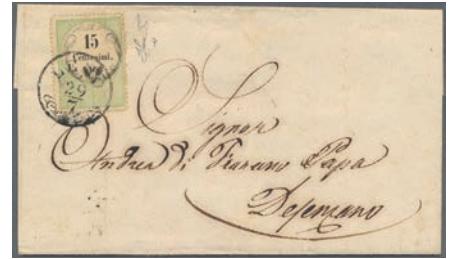 15
Centesimi.
29
Signor
Andrea di Papa
Desenzano